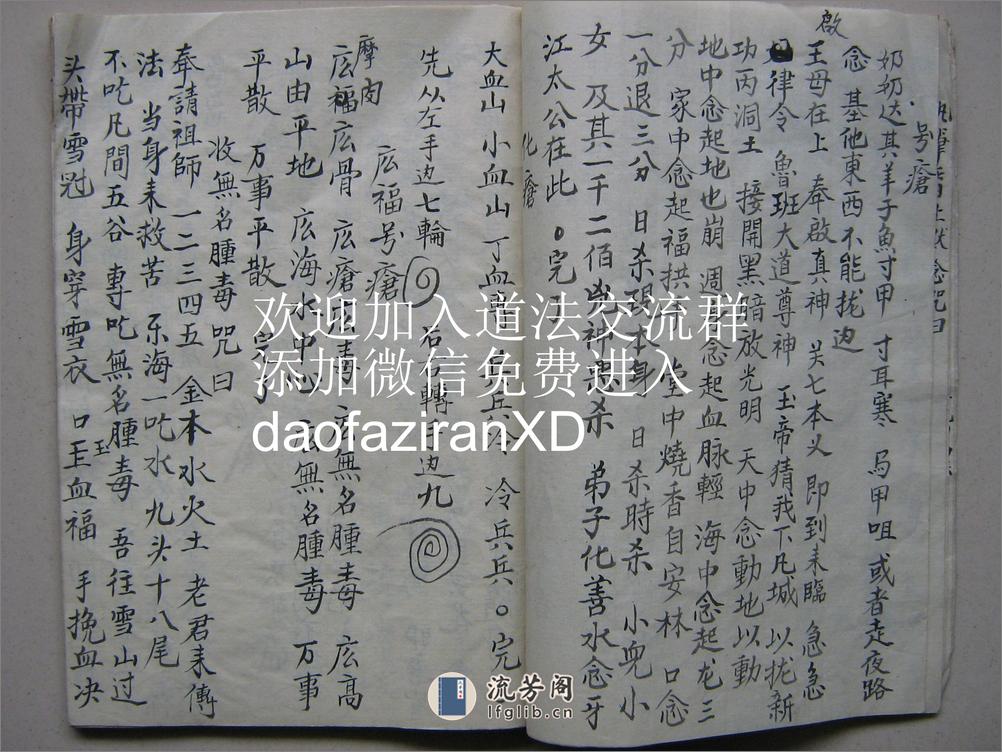 奶奶达其羊子魚寸甲 寸耳寒 马甲咀 或者走夜路
号瘡
念 基他東西不能拢边
啟
王母在上 奉啟真神 关七本义 即到耒臨 急急
律令 魯班大道尊神 玉帝猜我下凡城 以拢新
功丙洞土 接開黑暗放光明 天中念動地以動
地中念起地也崩 週 念起血脉輕 海中念起龙三
分 家中念起福拱 堂中燒香自安林 口念
一分退三分 日杀 身 日杀時杀 小兒小
女 及其一千二佰凶神 杀 弟子化善水念牙
江太公在此 完了
化瘡
大血山 小血山 丁血 兵兵冷 冷兵兵 完
先从左手边七輪 右轉 边九
庅福号瘡
摩肉
庅福庅骨 庅瘡 毒 庅無名腫毒 庅高
山由平地 庅海水中心 庅無名腫毒 万事
平散 万事平散 完了
收無名腫毒咒曰
奉請祖師 一二三四五 金木水火土 老君耒傳
法 当身耒救苦 东海一吃水 九头十八尾
不吃凡間五谷 專吃無名腫毒 吾往雪山过
头带雪冠 身穿雪衣 口玉血福 手挽血决
欢迎加入道法交流群
添加微信免费进入
daofaziranXD
流芳阁
lfglib.cn